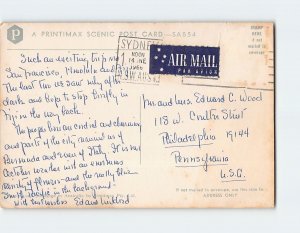 A PRINTIMAX SCENIC POST CARD—SA554
P
STAMP
HERE
if not
mailed in
envelope
SYDNEY
NOON
14 NE
N.S.W. AUST
AIR MAIL
PAR AVION
Such an exciting trip now
San Francisco, Honolulu and
The last two we saw only after
dark and hope to stop briefly in
Fiji on the way back.
The people here are cordial and charming
and parts of the city remind us of
Bermuda and even of Italy. It is real
October weather with an enormous
variety of flowers - and the really blue
South Pacific in the background -
with best wishes Ed and
Mr and Mrs. Edward C. Wood
118 W. Street
Philadelphia 19144
Pennsylvania
U.S.A.
If not mailed in envelope, use this side for
ADDRESS ONLY